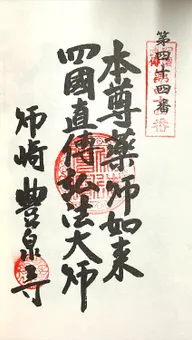 第四十四番
本尊藥師如来
四國直傳弘法大师
师崎豊泉寺